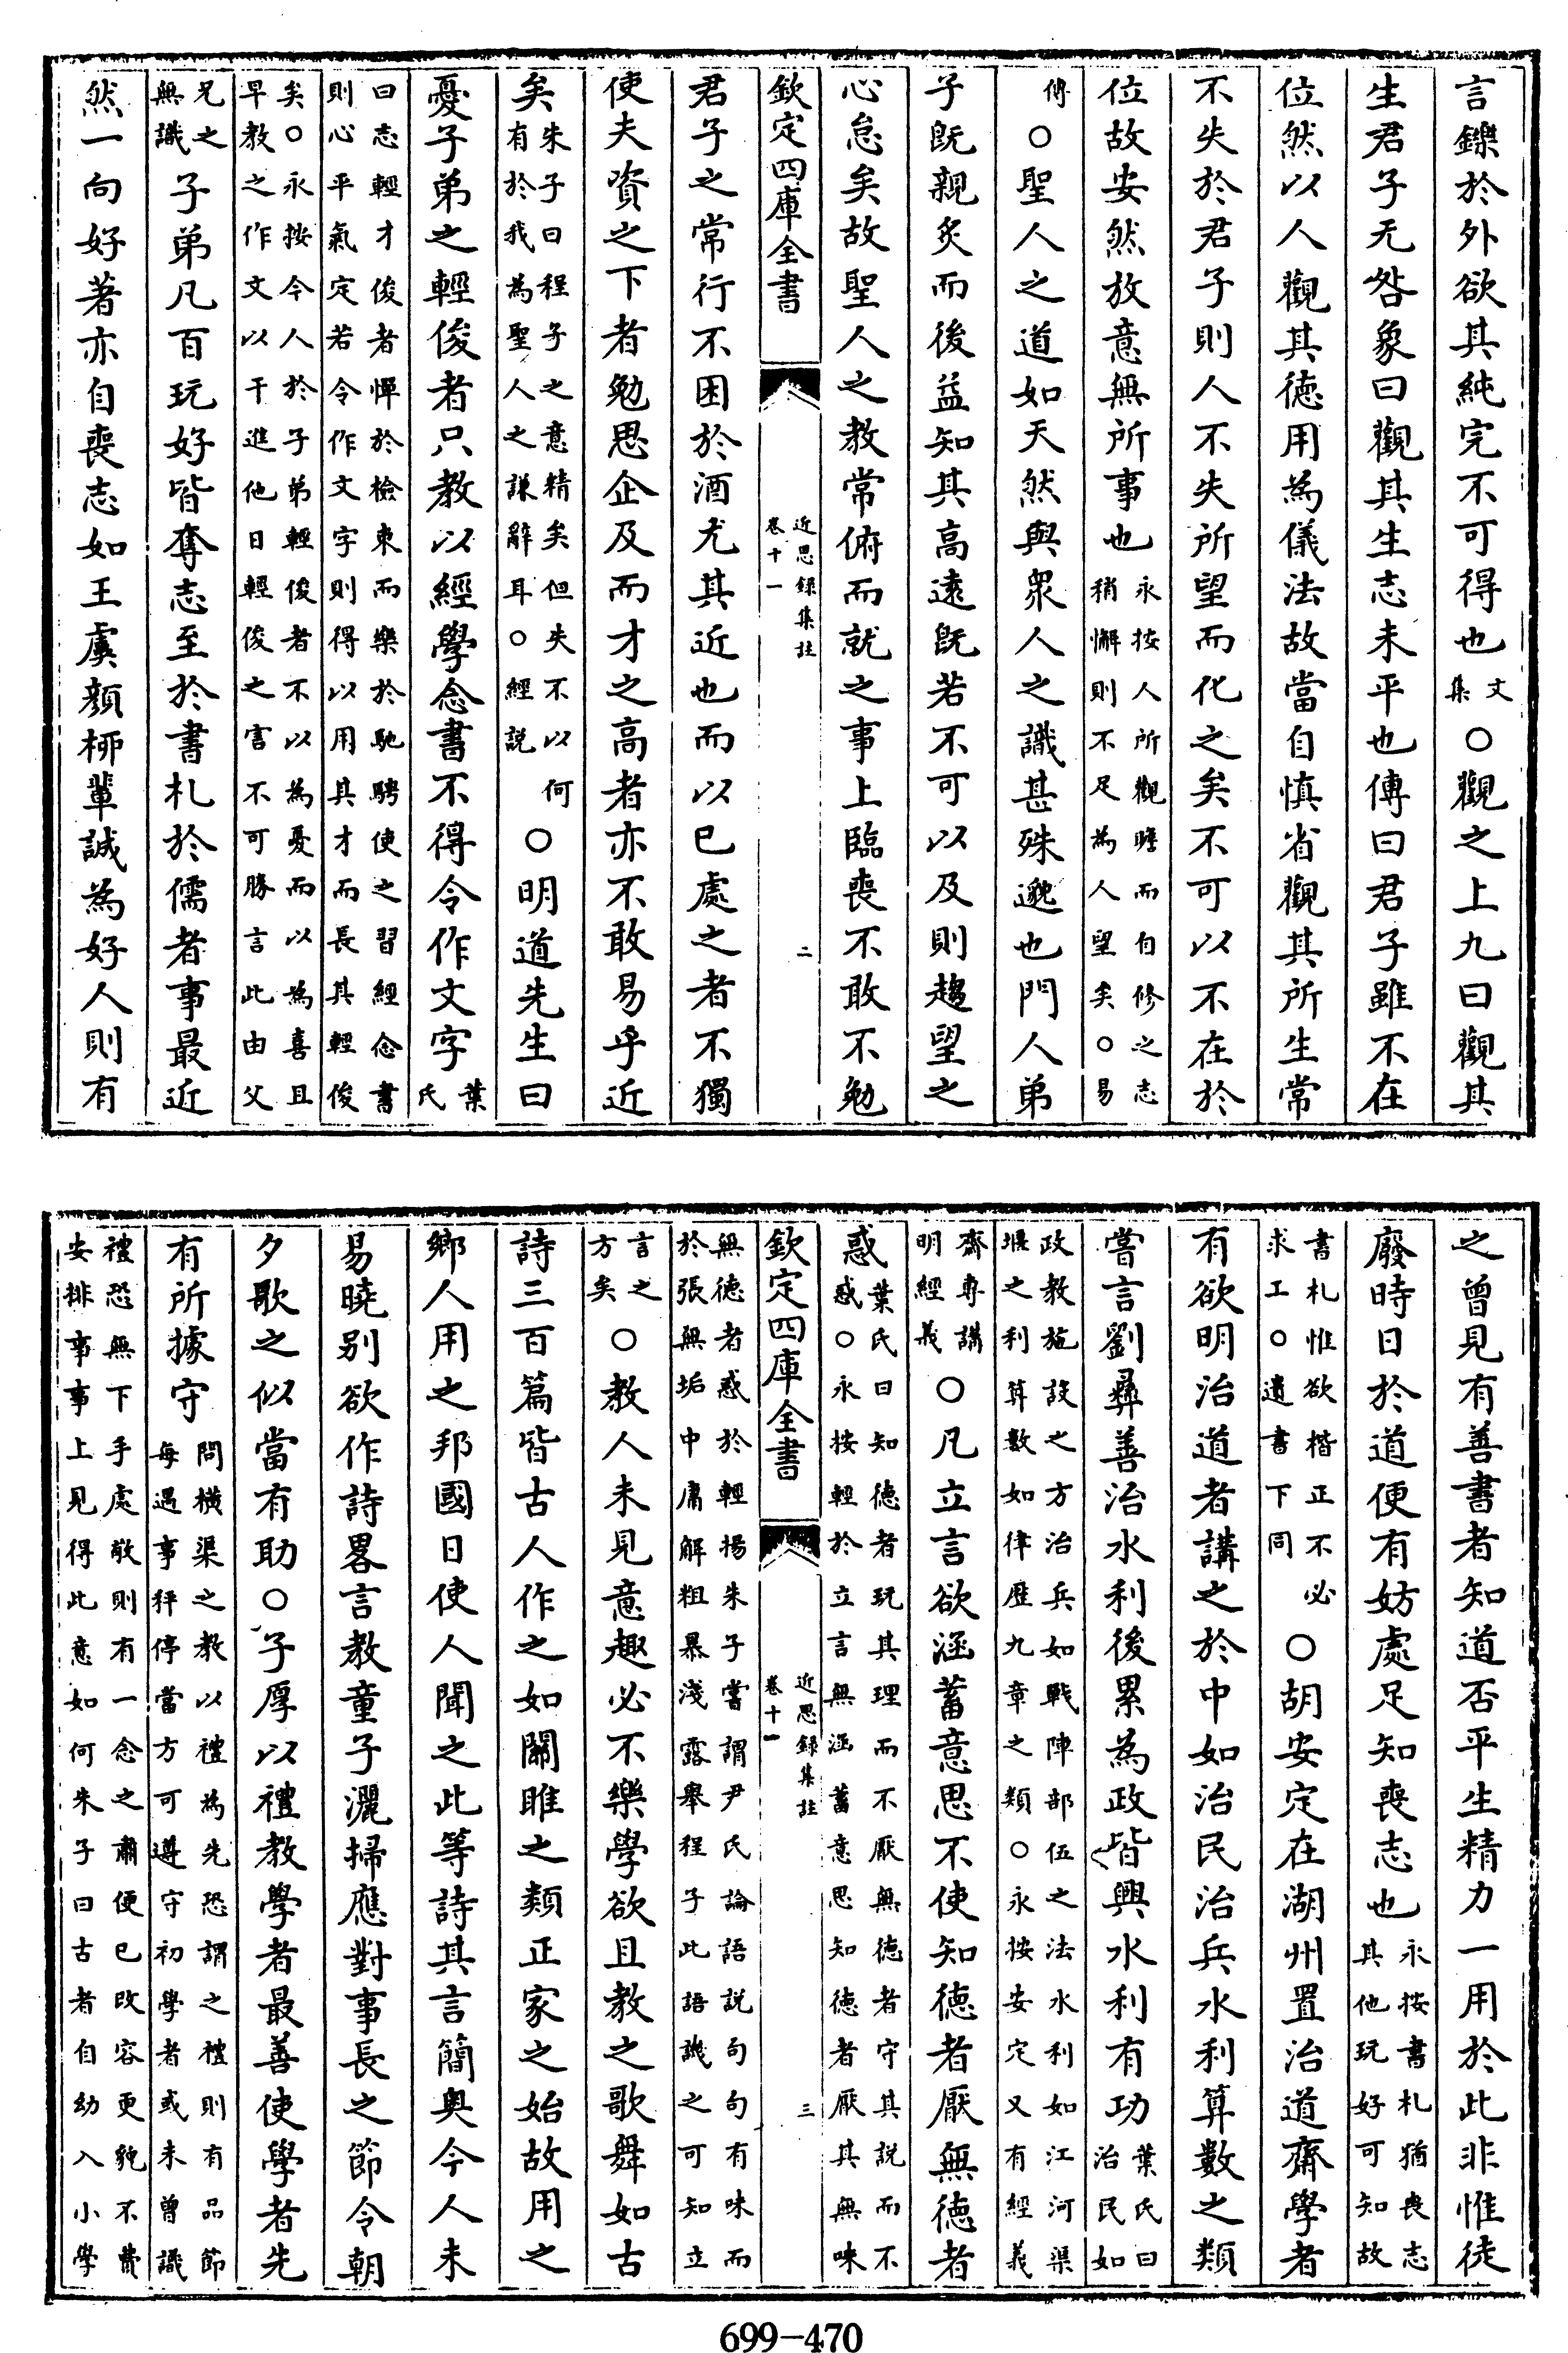 言鑠於外欲其純完不可得也文集○觀之上九曰觀其
生君子无咎象曰觀其生志未平也傳曰君子雖不在
位然以人觀其德用為儀法故當自慎省觀其所生常
不失於君子則人不失所望而化之矣不可以不在於
位故安然放意無所事也永按人所觀瞻而自修之志稍懈則不足為人望矣○易
傳○聖人之道如天然與眾人之識甚殊邈也門人弟
子旣親炙而後益知其高遠旣若不可以及則趨望之
心怠矣故聖人之教常俯而就之事上臨喪不敢不勉
欽定四庫全書
近思録集註
卷十一
二
君子之常行不困於酒尤其近也而以已處之者不獨
使夫資之下者勉思企及而才之高者亦不敢易乎近
矣朱子曰程子之意精矣但失不以何有於我為聖人之謙辭耳○經説○明道先生曰
憂子弟之輕俊者只教以經學念書不得令作文字葉氏
曰志輕才俊者憚於檢束而樂於馳騁使之習經念書
則心平氣定若令作文字則得以用其才而長其輕俊
矣○永按今人於子弟輕俊者不以為憂而以為喜且
早教之作文以干進他日輕俊之害不可勝言此由父
兄之無識子弟凡百玩好皆奪志至於書札於儒者事最近
然一向好著亦自喪志如王虞顏栁輩誠為好人則有
之曾見有善書者知道否平生精力一用於此非惟徒
廢時日於道便有妨處足知喪志也永按書札猶喪志其他玩好可知故
書札惟欲楷正不必求工○遺書下同○胡安定在湖州置治道齋學者
有欲明治道者講之於中如治民治兵水利算數之類
嘗言劉彞善治水利後累為政皆興水利有功葉氏曰治民如
政教施設之方治兵如戰陣部伍之法水利如江河渠
堰之利算數如律歴九章之類○永按安定又有經義
齋專講明經義○凡立言欲涵蓄意思不使知德者厭無德者
惑葉氏曰知德者玩其理而不厭無德者守其說而不惑○永按輕於立言無涵蓄意思知德者厭其無味
欽定四庫全書
近思録集註
卷十一
三
無德者惑於輕揚朱子嘗謂尹氏論語説句句有味而
於張無垢中庸解粗暴淺露舉程子此語譏之可知立
言之方矣○教人未見意趣必不樂學欲且教之歌舞如古
詩三百篇皆古人作之如關雎之類正家之始故用之
鄉人用之邦國日使人聞之此等詩其言簡奥今人未
易曉别欲作詩畧言教童子灑掃應對事長之節令朝
夕歌之似當有助○子厚以禮教學者最善使學者先
有所據守問橫渠之教以禮為先恐謂之禮則有品節每遇事秤停當方可遵守初學者或未曾識
禮恐無下手處敬則有一念之肅便已改容更貌不費
安排事事上見得此意如何朱子曰古者自幼入小學
699-470